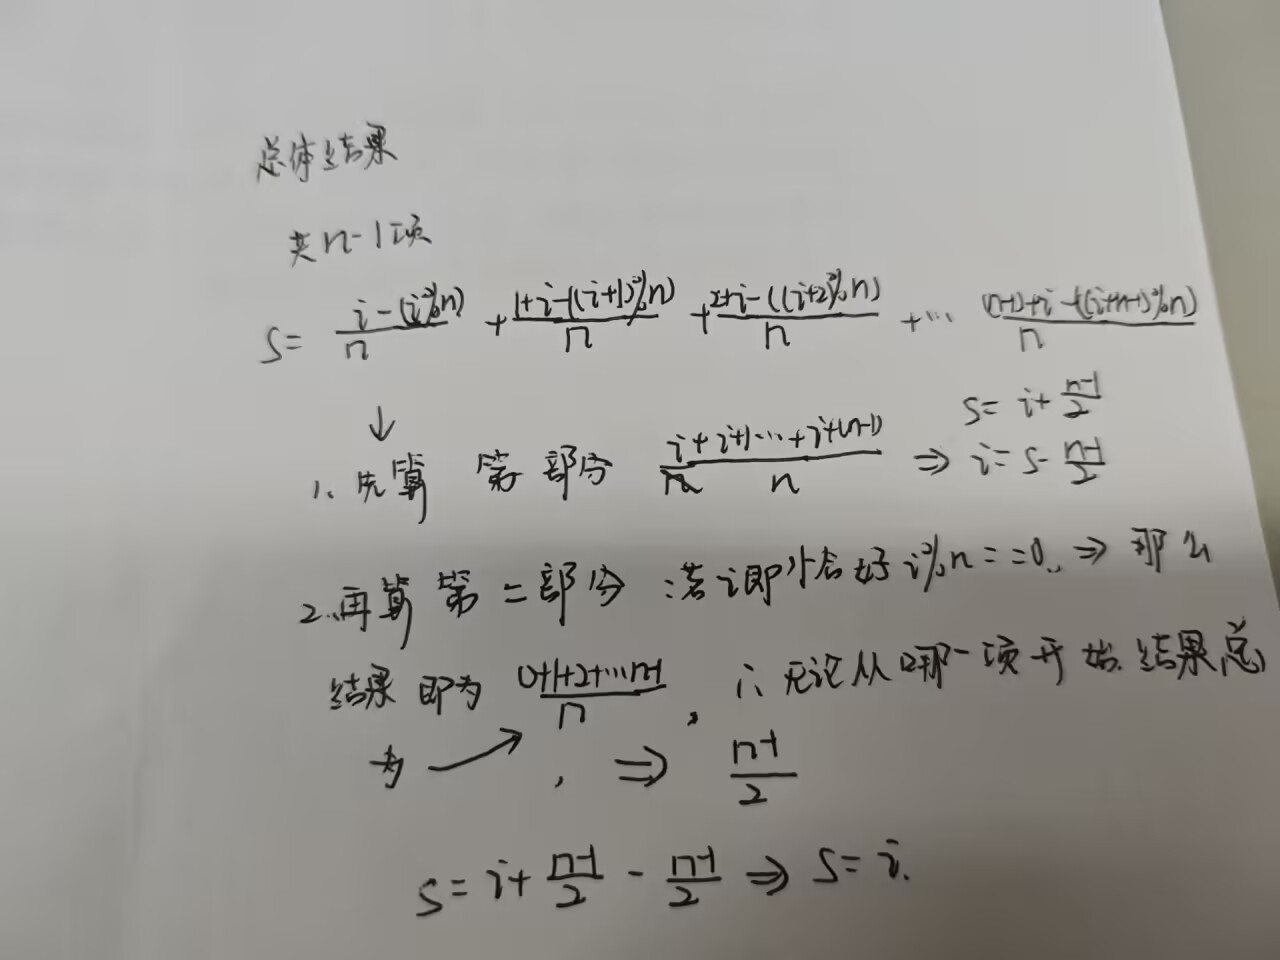 总体结果
共n-1项
S= (i-(i%n))/n + (1+i-((i+1)%n))/n + (2+i-((i+2)%n))/n + … ((n-1)+i-((i+n-1)%n))/n
↓
S= i+ (n-1)/2
1、先算 第 部分 (i+i+1…+i+(n-1))/n ⇒ i= S- (n-1)/2
2、再算第二部分：若i即恰好i%n==0, ⇒ 那么
结果即为 (0+1+2+…n-1)/n , ∴无论从哪一项开始 结果总
为 , ⇒ (n-1)/2
S= i+ (n-1)/2 - (n-1)/2 ⇒ S= i.